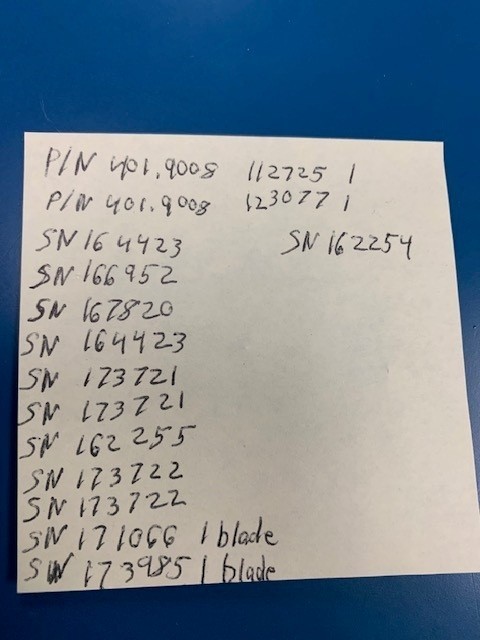 P/N 401.9008 112725 1
P/N 401.9008 123077 1
SN 164423 SN 162254
SN 166952
SN 167820
SN 164423
SN 173721
SN 173721
SN 162255
SN 173722
SN 173722
SN 171066 1 blade
SN 173985 1 blade